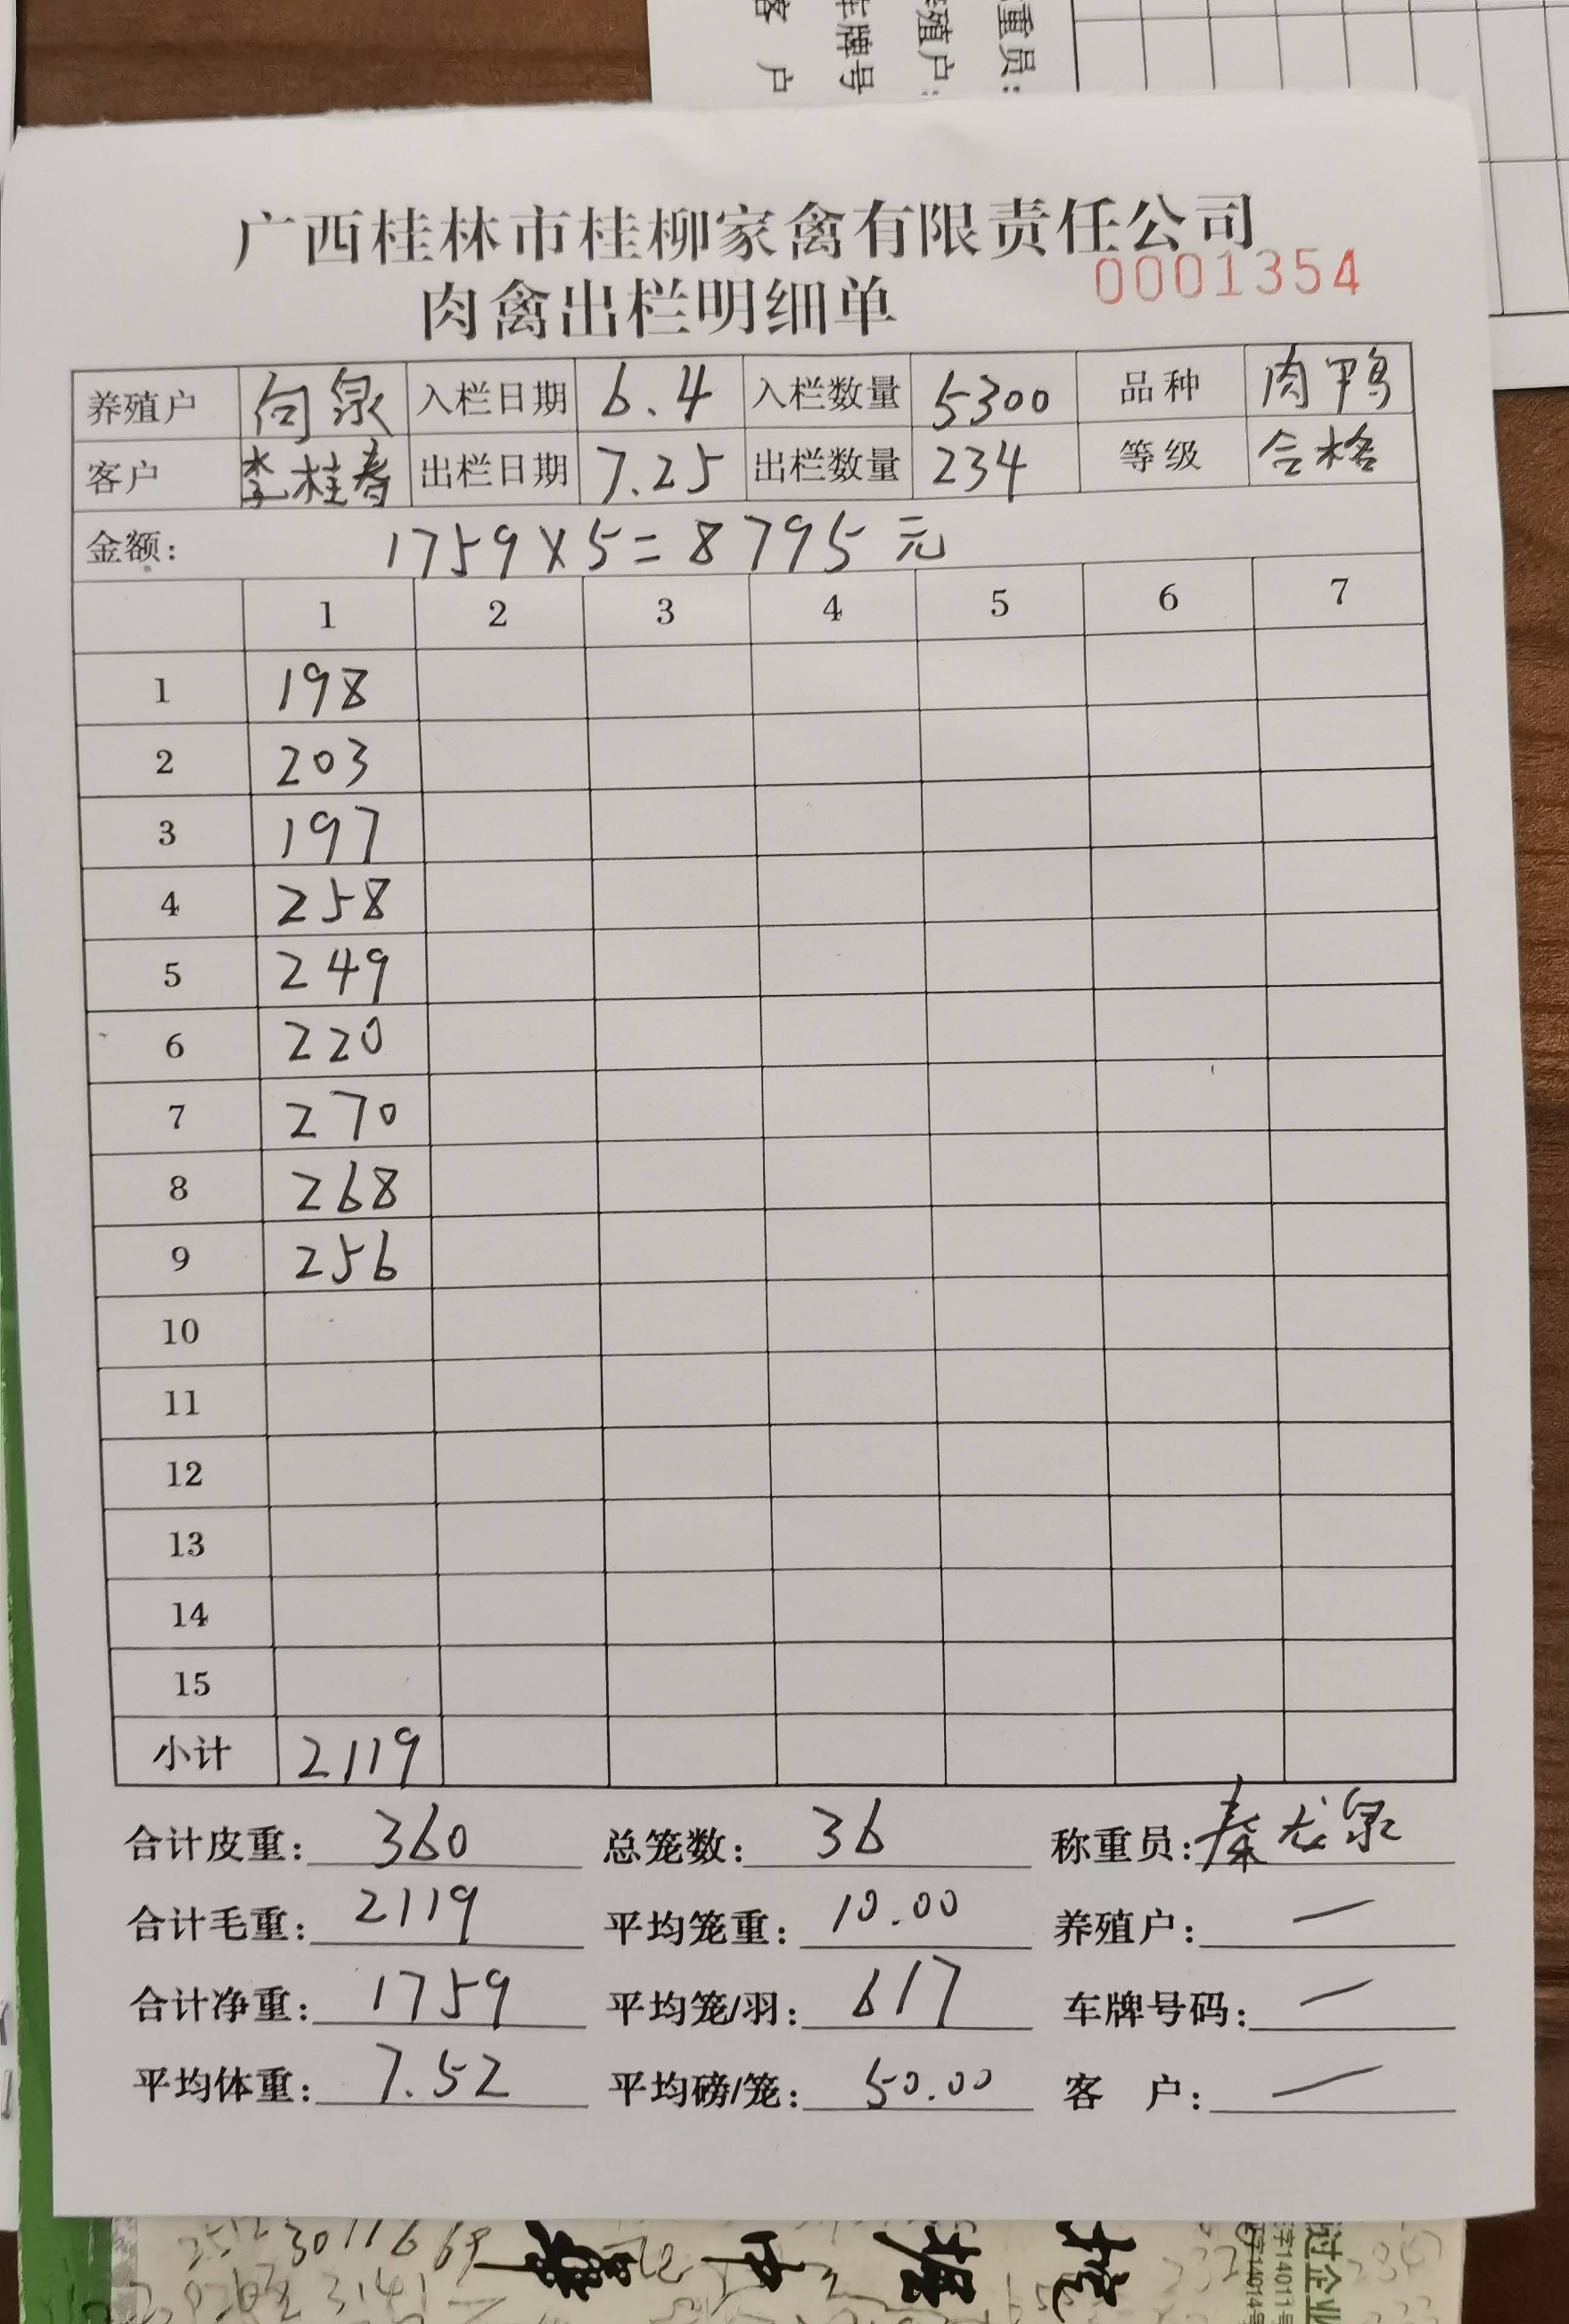 客户
车牌号
殖户:
重员:
广西桂林市桂柳家禽有限责任公司
0001354
肉禽出栏明细单
养殖户 向泉 入栏日期 6.4 入栏数量 5300 品种 肉鸭
客户 李桂春 出栏日期 7.25 出栏数量 234 等级 合格
金额: 1759×5=8795元
1 2 3 4 5 6 7
1 198
2 203
3 197
4 258
5 249
6 220
7 270
8 268
9 256
10
11
12
13
14
15
小计 2119
合计皮重: 360 总笼数: 36 称重员: 秦龙泉
合计毛重: 2119 平均笼重: 10.00 养殖户: 一
合计净重: 1759 平均笼/羽: 617 车牌号码: 一
平均体重: 7.52 平均磅/笼: 50.00 客 户: 一
过企业
字14011号